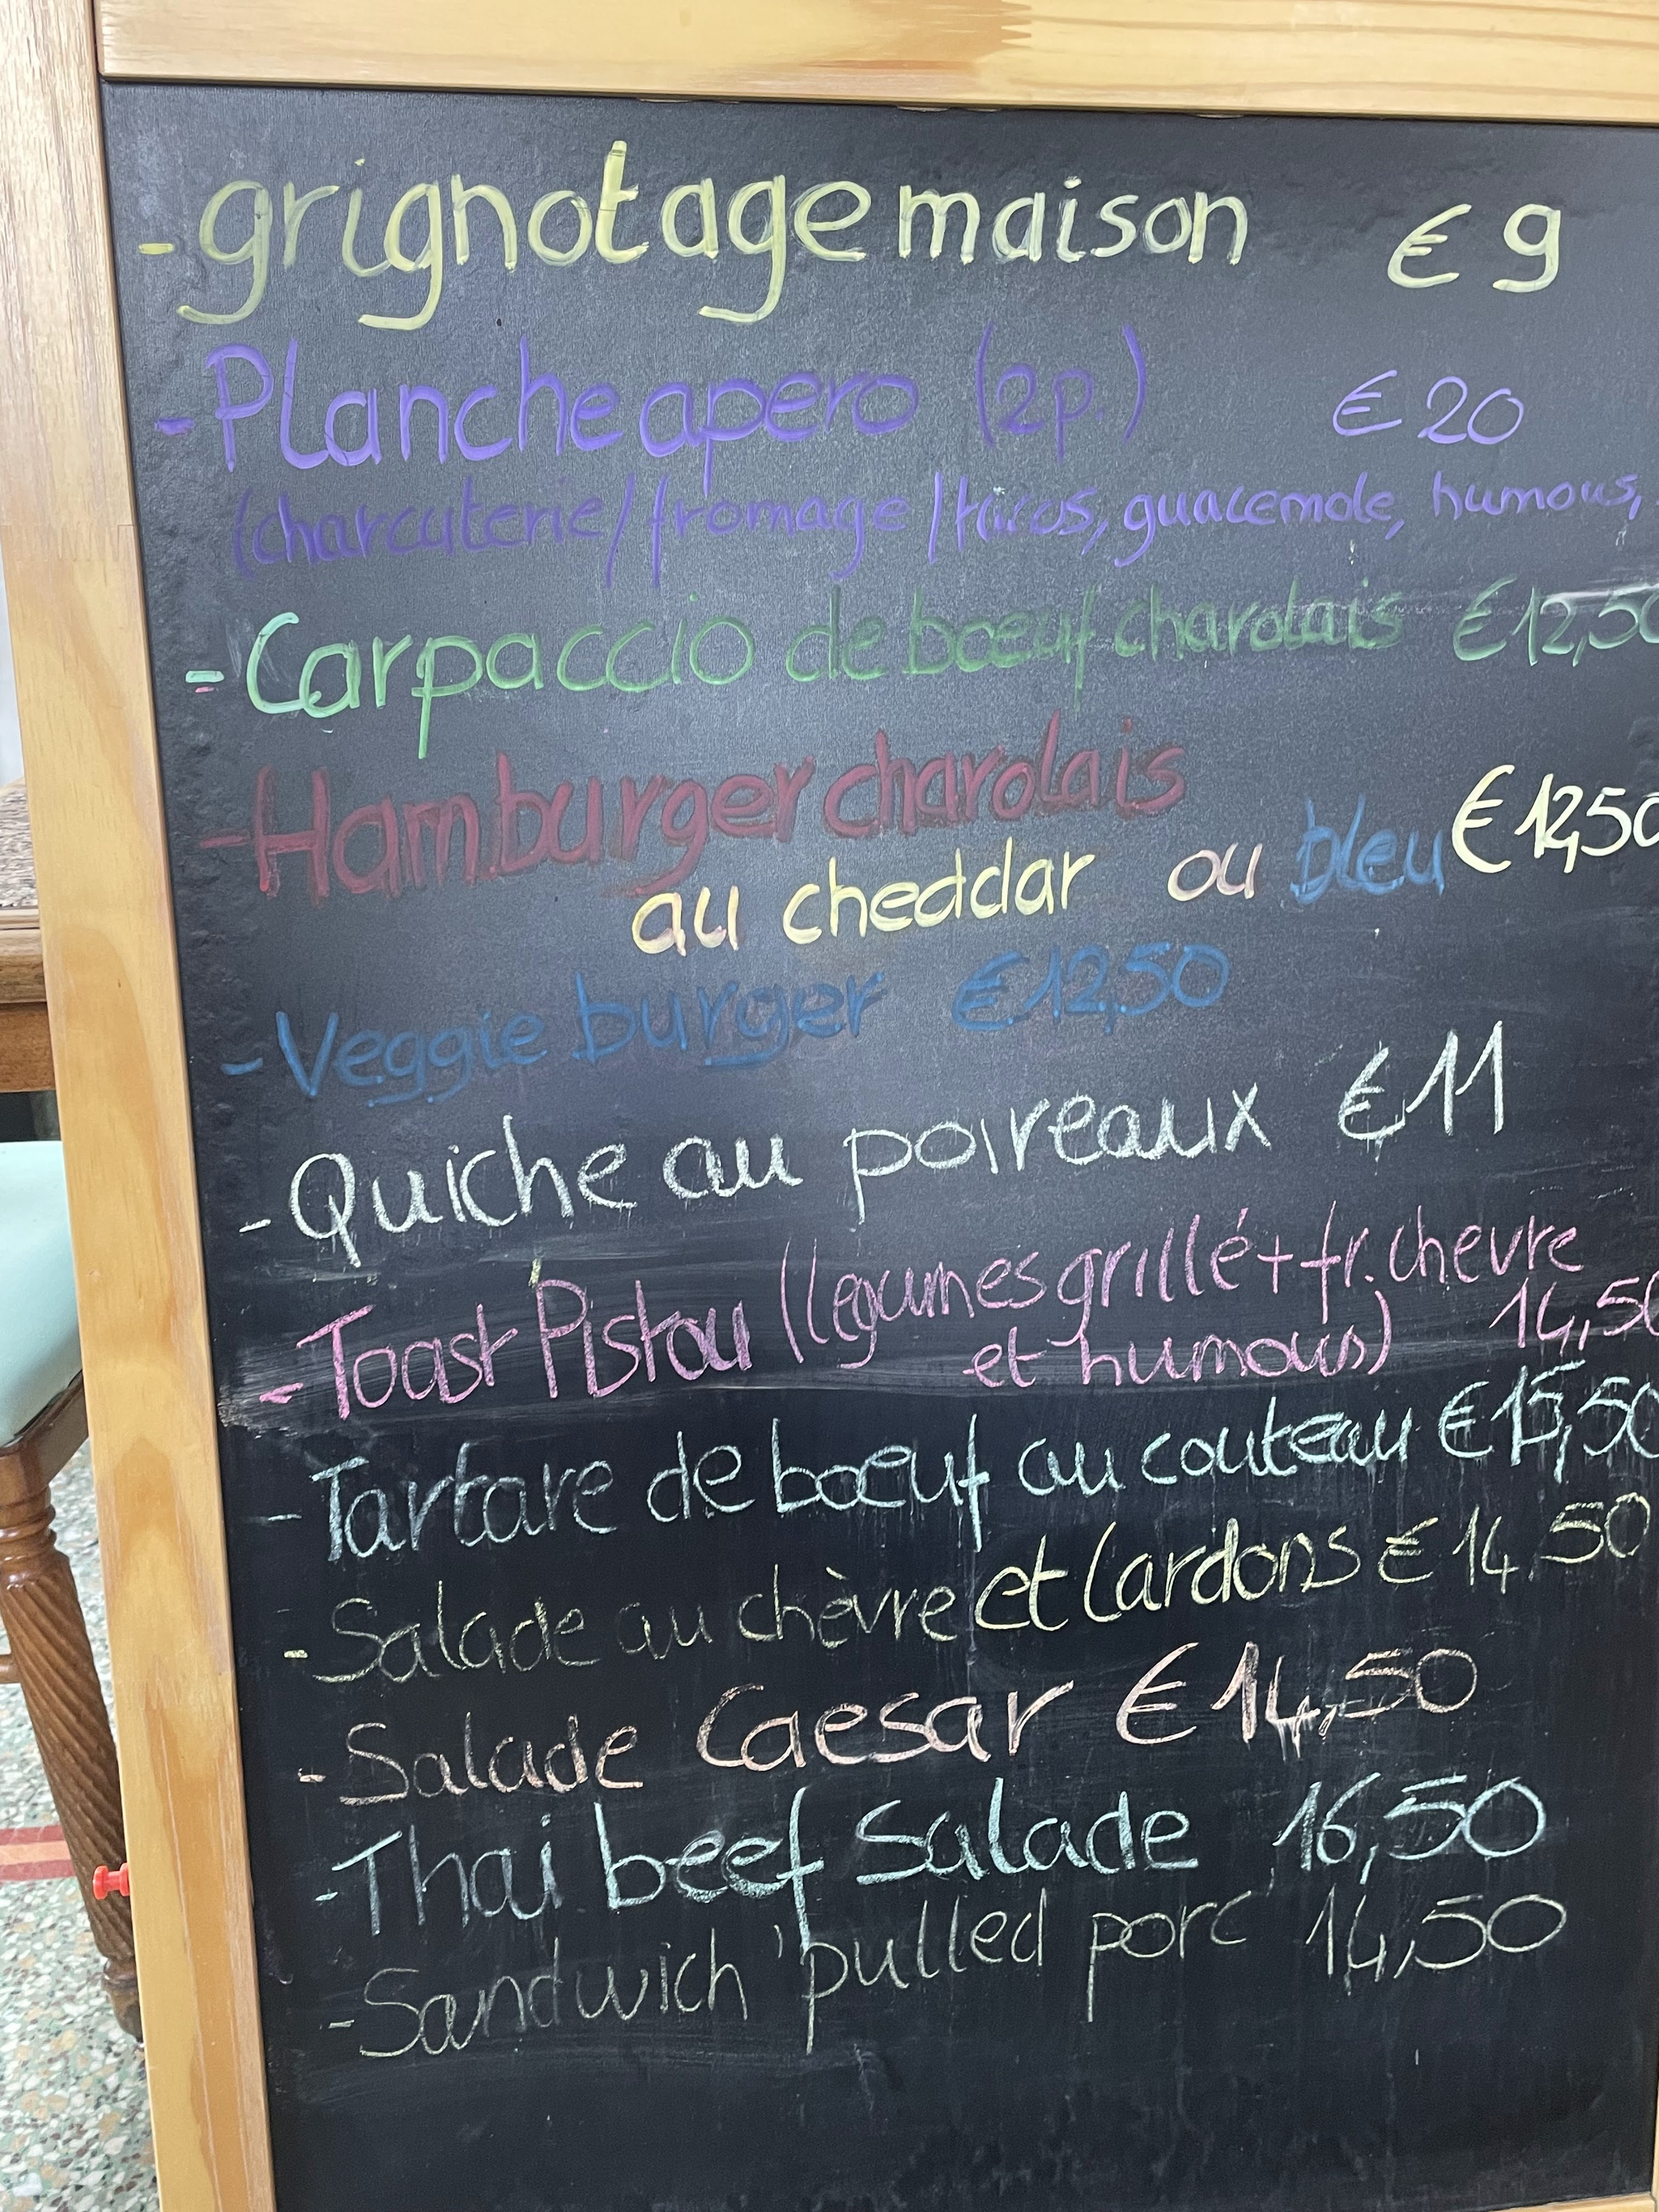 - grignotage maison € 9
- Planche apero (2p.) € 20
(charcuterie/fromage/tacos, guacemole, humous,
- Carpaccio de bœuf charolais €12,50
- Hamburger charolais
au cheddar ou bleu €12,50
- Veggie burger €12,50
- Quiche au poireaux €11
- Toast Pistou (légumes grillé + fr. chevre
et humous) 14,50
- Tartare de bœuf au couteau €15,50
- Salade au chèvre et lardons €14,50
- Salade Caesar €14,50
- Thai beef Salade 16,50
- Sandwich 'pulled porc 14,50